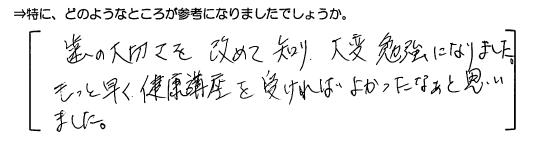 ⇒特に、どのようなところが参考になりましたでしょうか。
歯の大切さを 改めて 知り、大変 勉強になりました。
もっと早く、健康講座を受ければ よかったなぁと思い
ました。